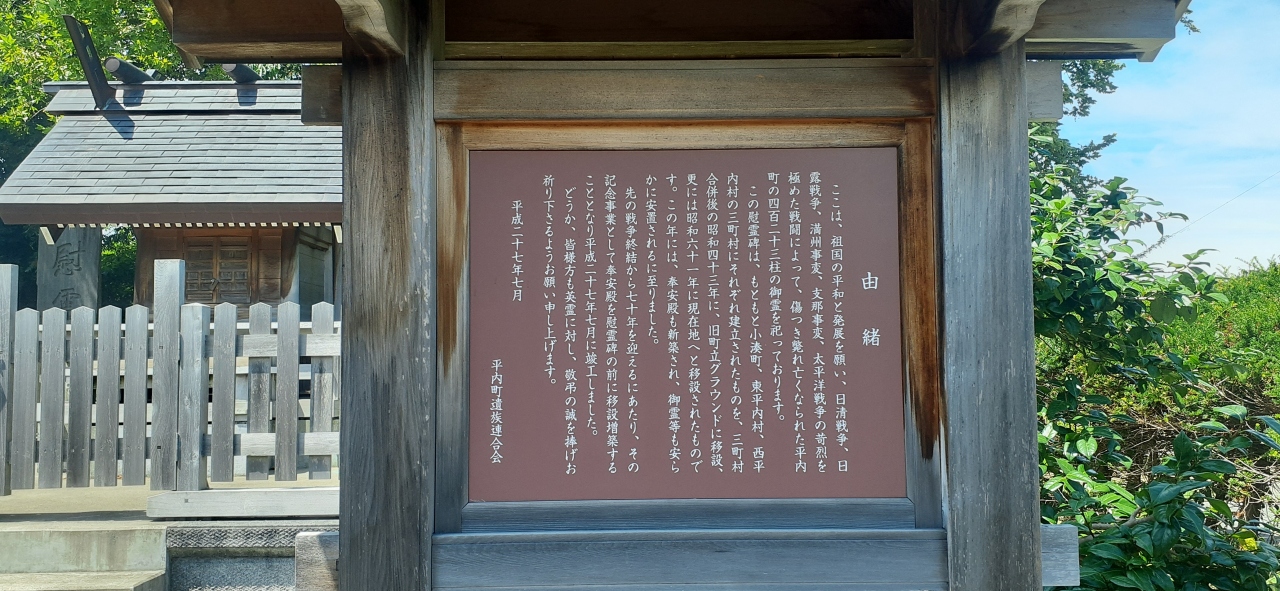 由緒
ここは、祖国の平和と発展を願い、日清戦争、日
露戦争、満州事変、支那事変、太平洋戦争の苛烈を
極めた戦闘によって、傷つき斃れ亡くなられた平内
町の四百二十三柱の御霊を祀っております。
この慰霊碑は、もともと小湊町、東平内村、西平
内村の三町村にそれぞれ建立されたものを、三町村
合併後の昭和四十三年に、旧町立グラウンドに移設、
更には昭和六十一年に現在地へと移設されたもので
す。この年には、奉安殿も新築され、御霊等も安ら
かに安置されるに至りました。
先の戦争終結から七十年を迎えるにあたり、その
記念事業として奉安殿を慰霊碑の前に移設増築する
こととなり平成二十七年七月に竣工しました。
どうか、皆様方も英霊に対し、敬弔の誠を捧げお
祈り下さるようお願い申し上げます。
平成二十七年七月
平内町遺族連合会
慰霊